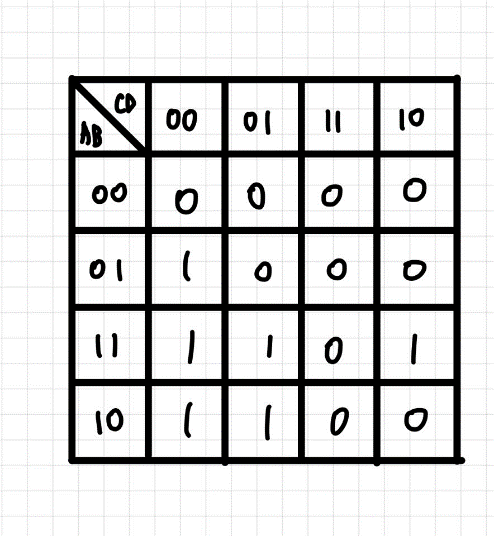 CD 00 01 11 10
AB
00 0 0 0 0
01 1 0 0 0
11 1 1 0 1
10 1 1 0 0